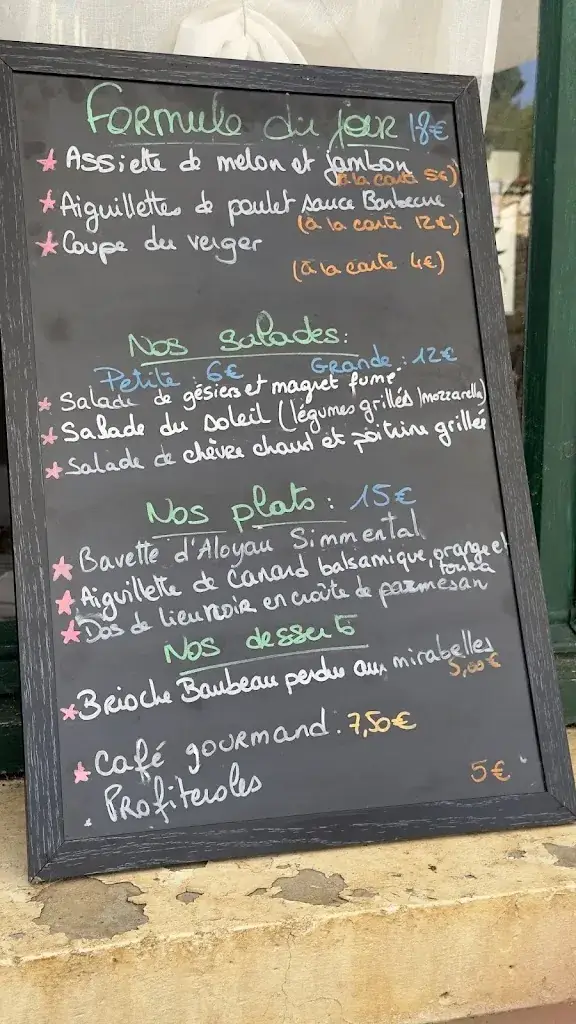 Formule du jour 18€
Assiette de melon et jambon
(à la carte 5€)
Aiguillettes de poulet sauce Barbecue
(à la carte 12€)
Coupe du verger
(à la carte 4€)
Nos salades:
Petite : 6€ Grande : 12€
Salade de gésiers et magret fumé
Salade du soleil (légumes grillés / mozzarella)
Salade de chèvre chaud et poitrine grillée
Nos plats : 15€
Bavette d'Aloyau Simmental
Aiguillette de Canard balsamique, orange et
tonka
Dos de lieu noir en croûte de parmesan
Nos desserts
Brioche Baubeau perdu aux mirabelles
5,00€
Café gourmand : 7,50€
Profiteroles 5€